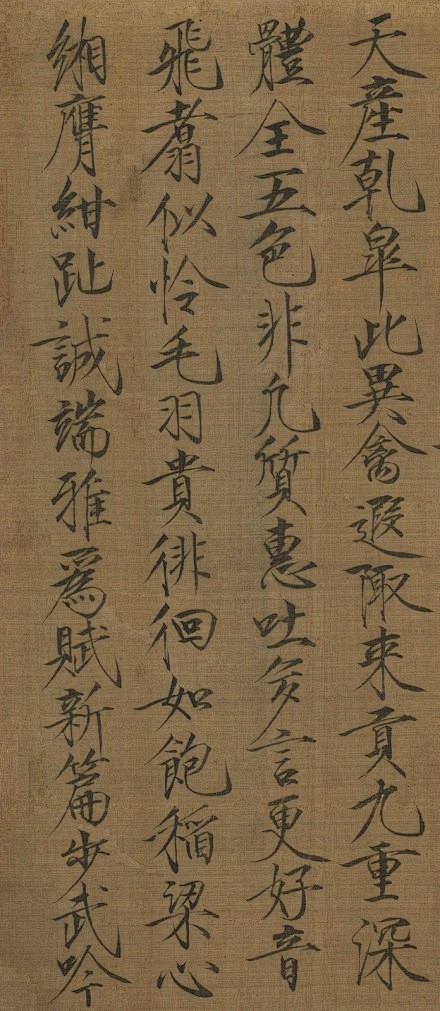 天産乹皐此異禽遐陬来貢九重深
體全五色非凡質惠吐多言更好音
飛翥似怜毛羽貴徘徊如飽稲粱心
緗膺紺趾誠端雅爲賦新篇步武吟